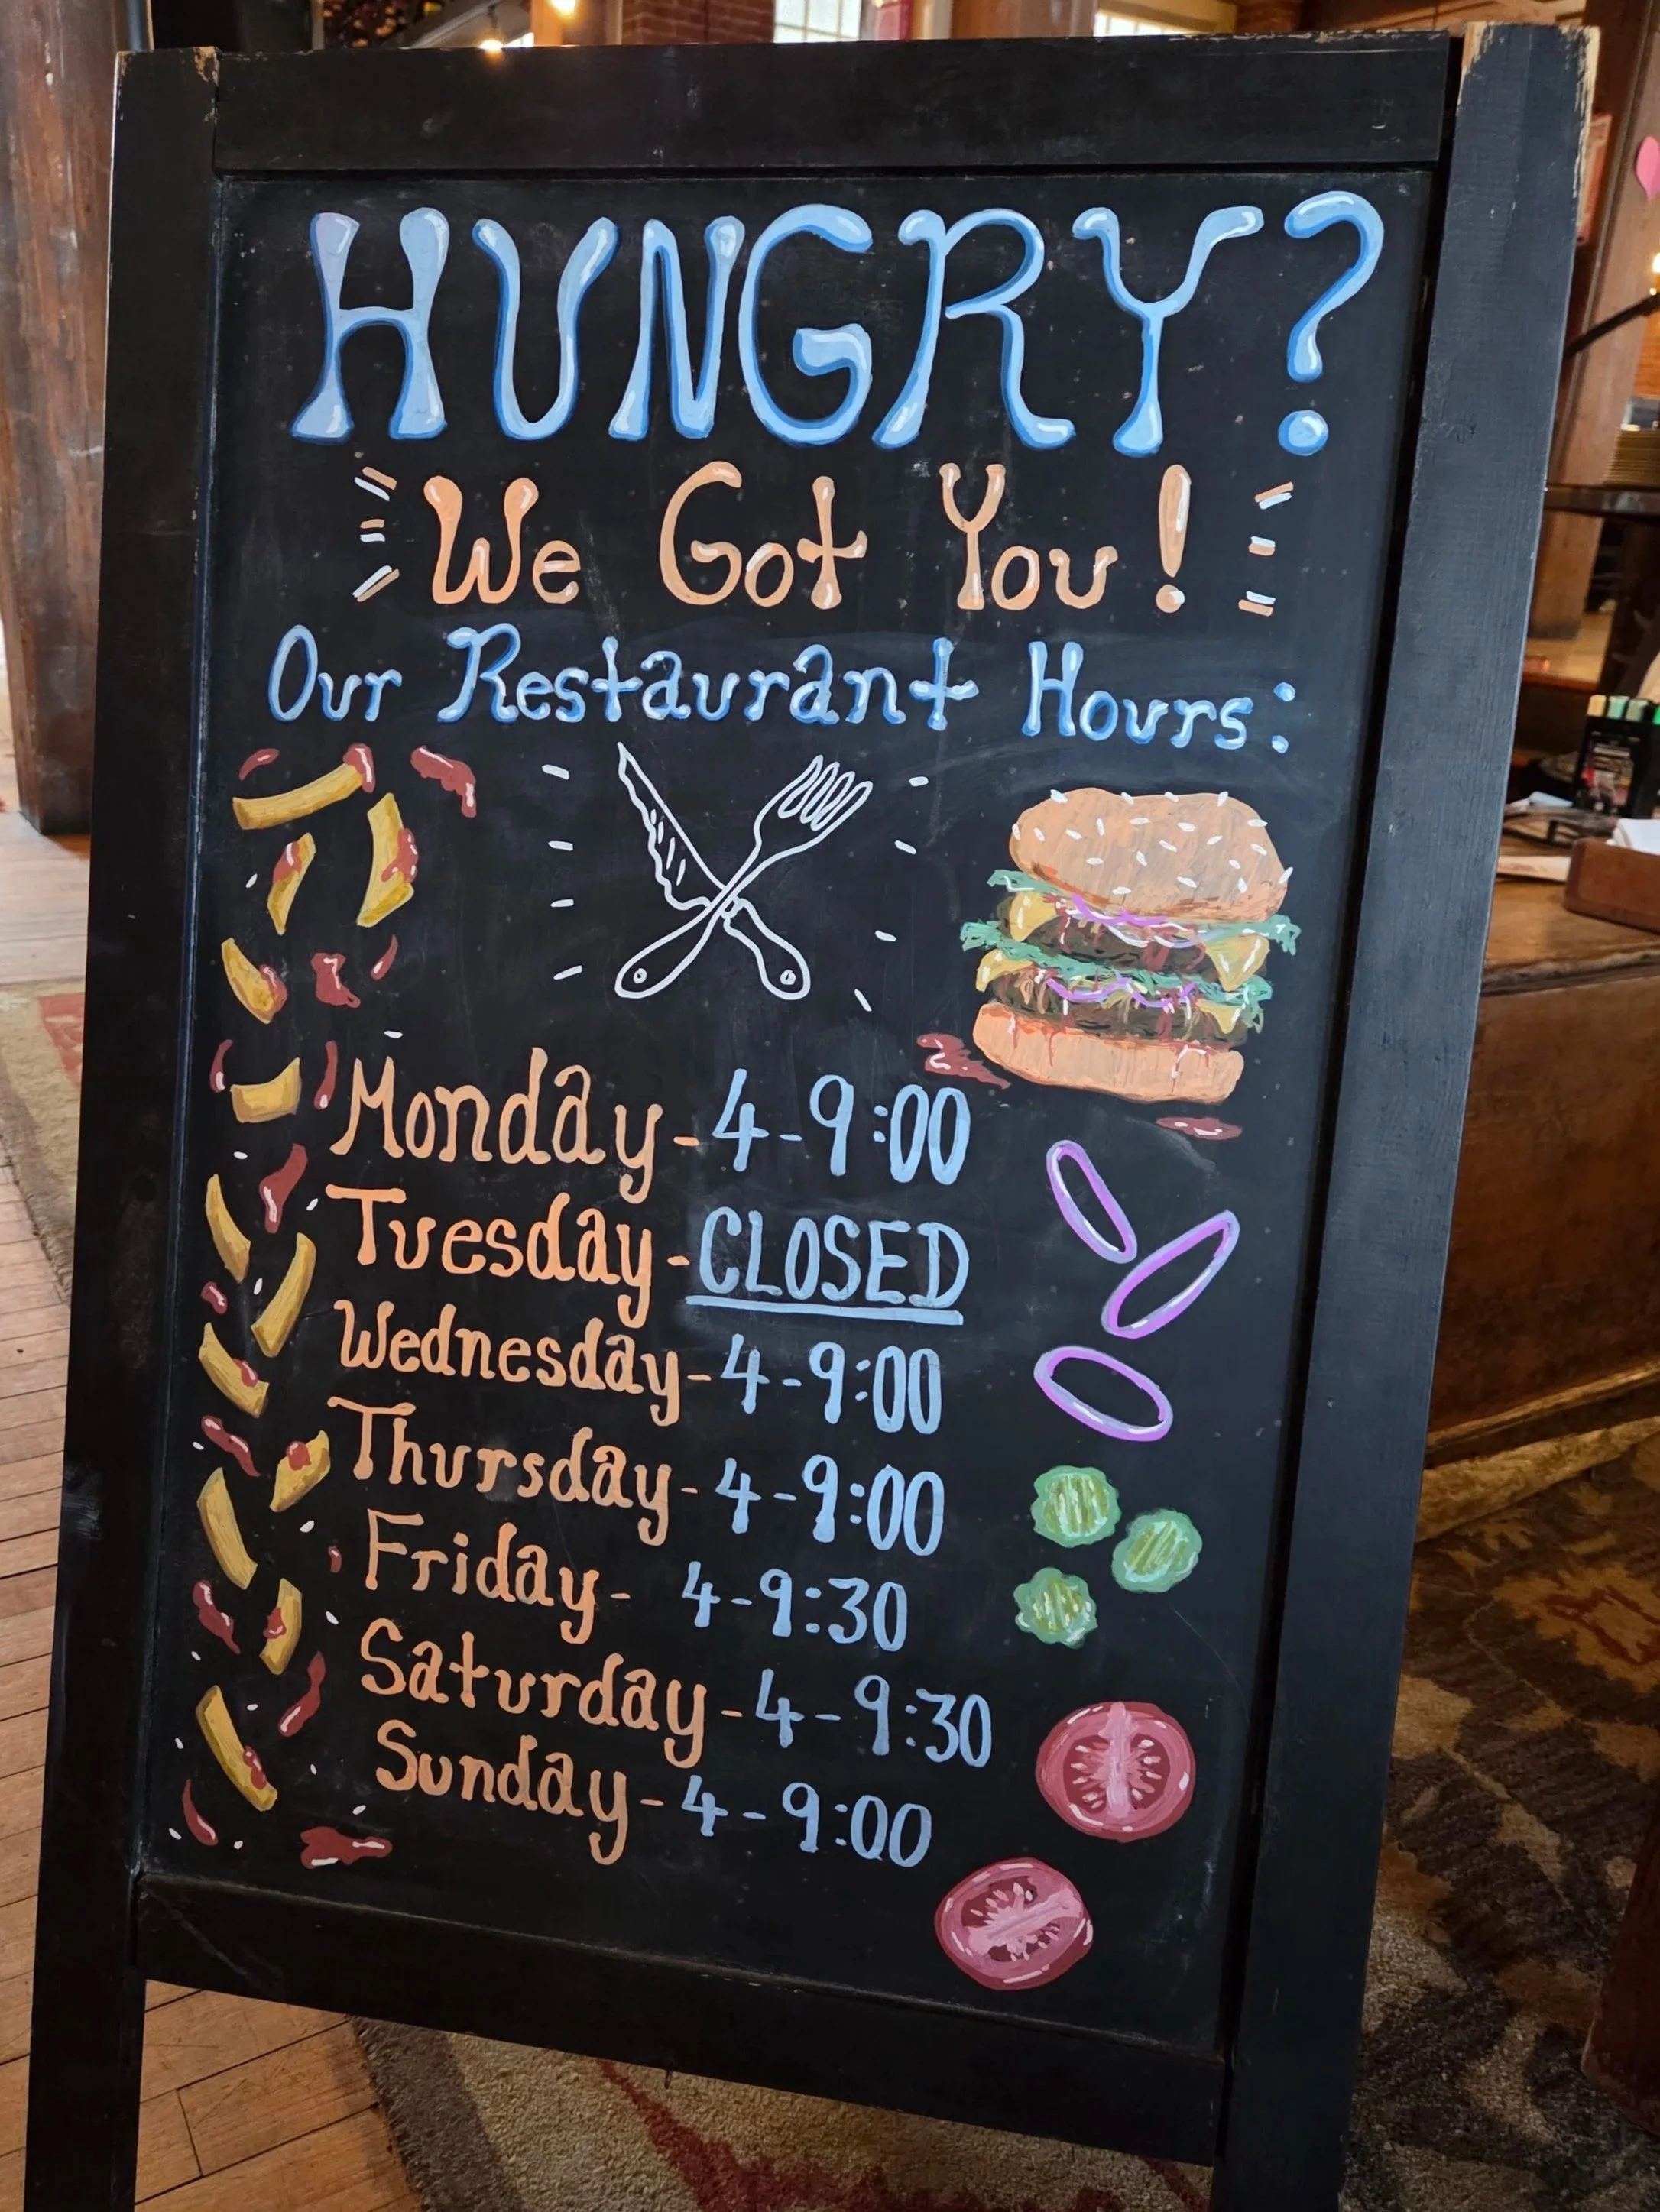 HUNGRY?
We Got You!
Our Restaurant Hours:
Monday - 4-9:00
Tuesday - CLOSED
Wednesday - 4-9:00
Thursday - 4-9:00
Friday - 4-9:30
Saturday - 4-9:30
Sunday - 4-9:00